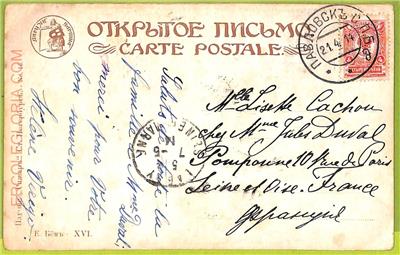 ОТКРЫТОЕ ПИСЬМО
CARTE POSTALE
ПАВЛОВСКЪ С.П.Б.
21.4.14
Mlle Lisette Cachou
chez Mme Jules Duval
Pomponne 20 Rue de Paris
Seine et Oise. France
Франция
Saluts à toute la
famille Mme Duval,
merci pour Votre
bon souvenir.
Hélène
Е. Бёмъ. XVI.
ERCOLEGLORIA.COM